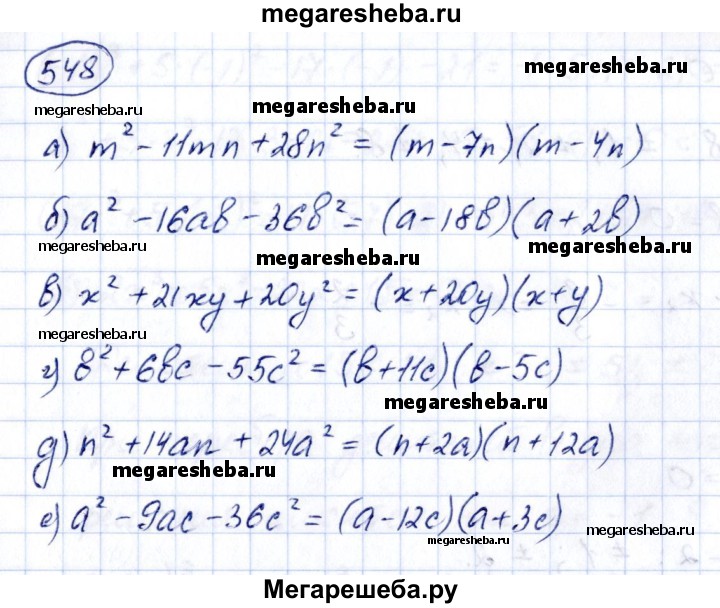 megaresheba.ru
548
megaresheba.ru
megaresheba.ru
megaresheba.ru
а) m² - 11mn + 28n² = (m - 7n)(m - 4n)
б) a² - 16ab - 36b² = (a - 18b)(a + 2b)
megaresheba.ru
megaresheba.ru
megaresheba.ru
в) x² + 21xy + 20y² = (x + 20y)(x + y)
megaresheba.ru
г) b² + 6bc - 55c² = (b + 11c)(b - 5c)
megaresheba.ru
д) n² + 14an + 24a² = (n + 2a)(n + 12a)
megaresheba.ru
е) a² - 9ac - 36c² = (a - 12c)(a + 3c)
megaresheba.ru
megaresheba.ru
Мегарешеба.ру